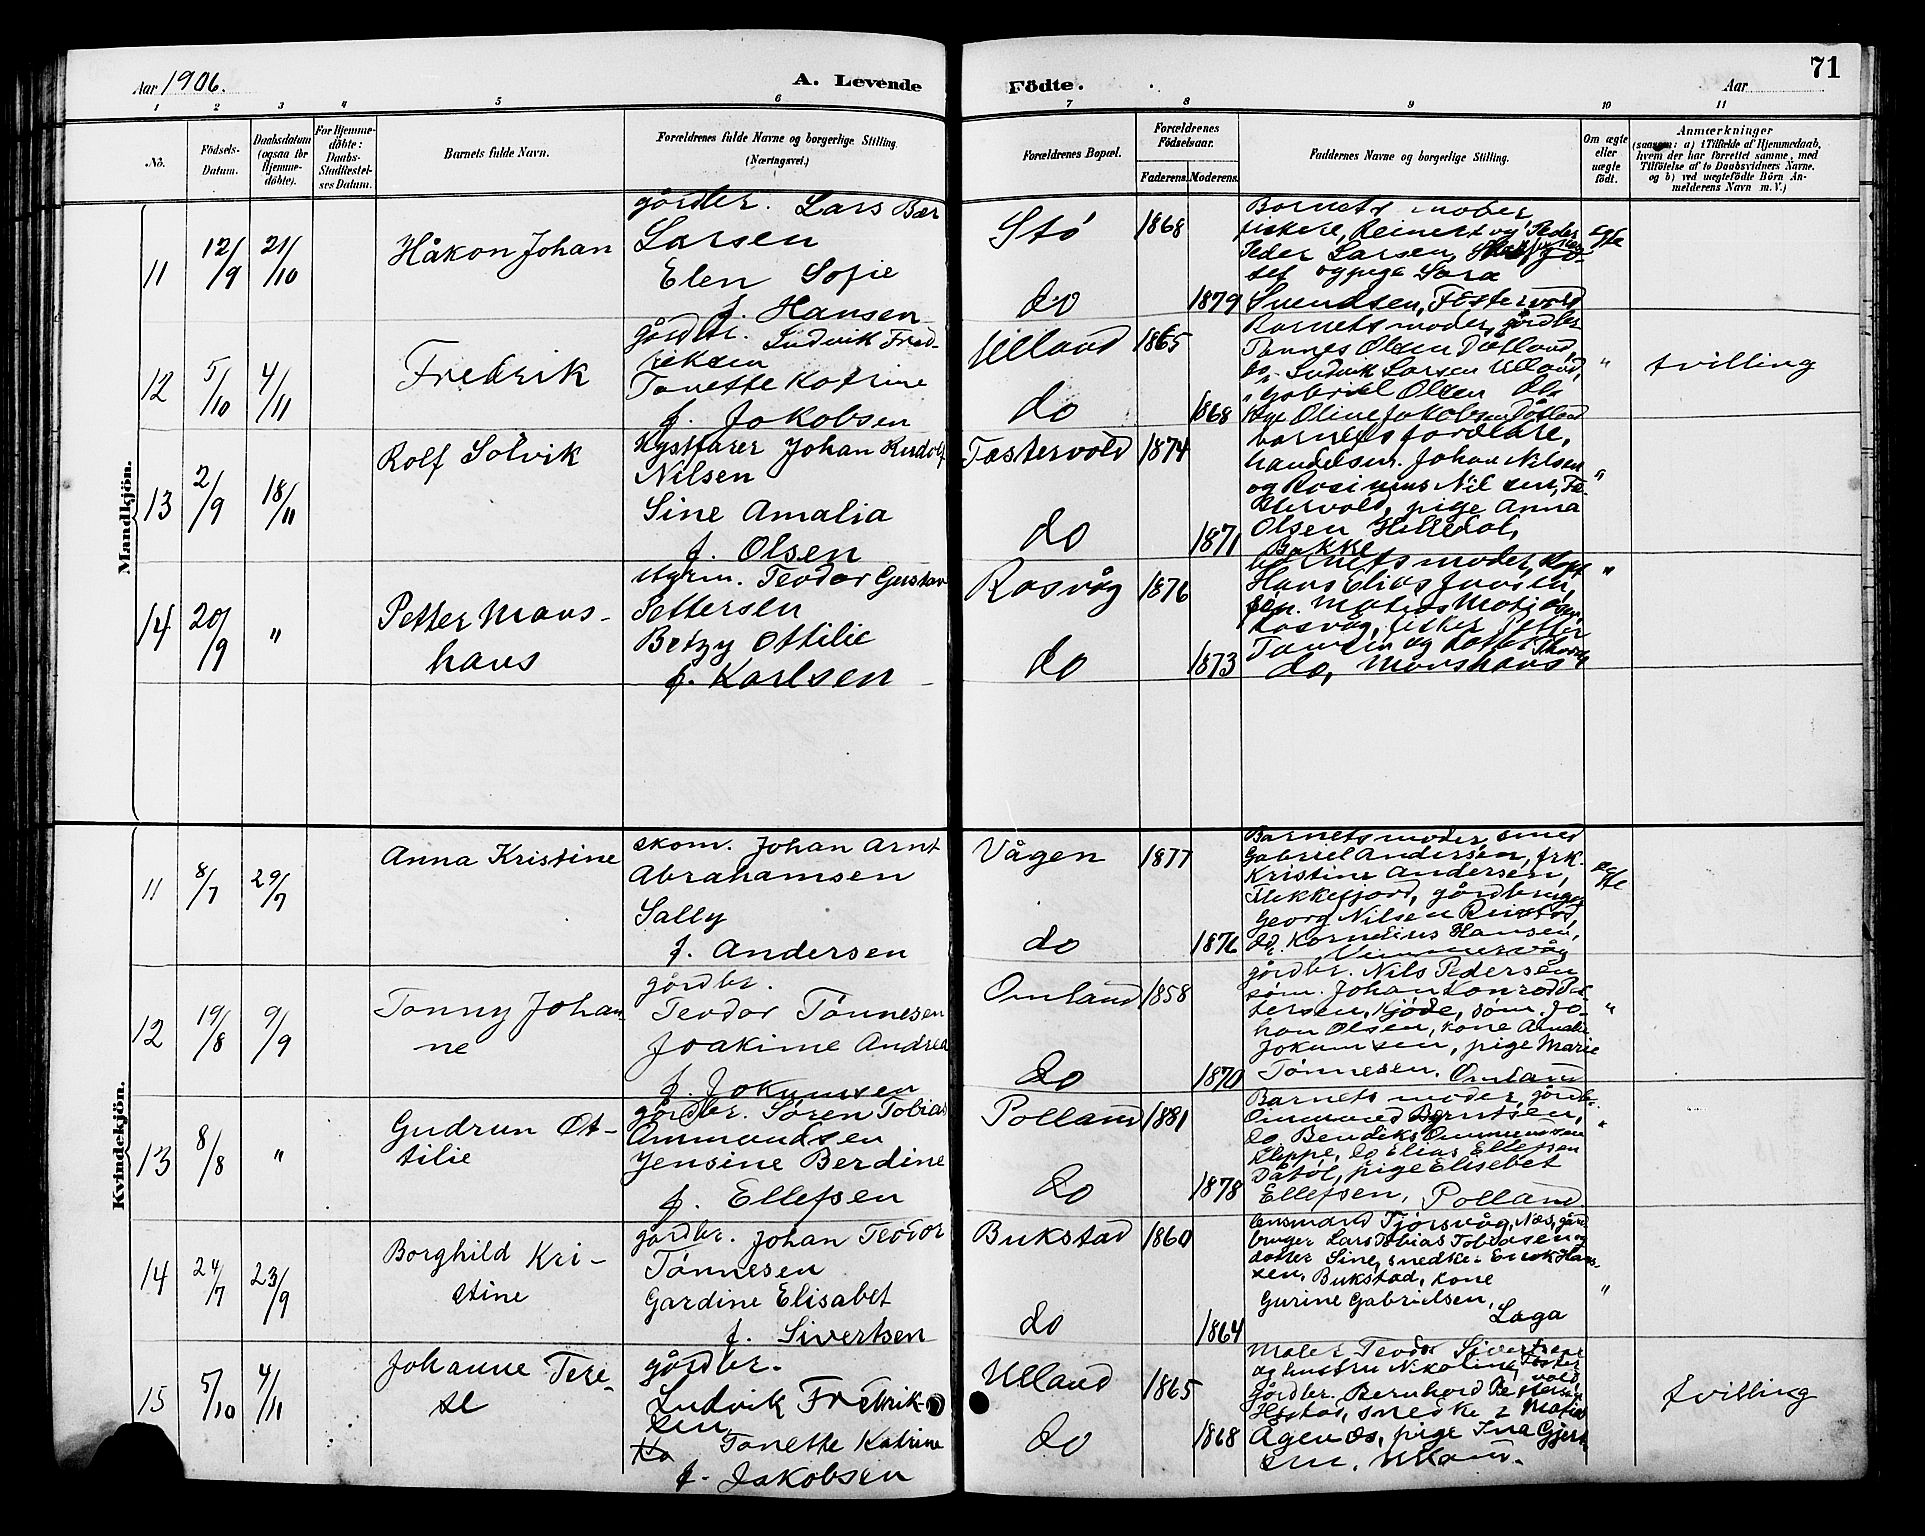 Aar 1906.
A. Levende
Födte.
Aar
71
1 2 3 4 5 6 7 8 9 10 11
No.
Födsels-Datum.
Daabsdatum (ogsaa for Hjemme-döbte).
For Hjemme-döbte: Daabs-Stadfæstel-ses Datum.
Barnets fulde Navn.
Forældrenes fulde Navne og borgerlige Stilling.
(Næringsvei.)
Forældrenes Bopæl.
Forældrenes Födselsaar.
Faderens. Moderens.
Faddernes Navne og borgerlige Stilling.
Om ægte eller uægte født.
Anmærkninger
(saasom: a) i Tilfælde af Hjemmedaab,
hvem der har forrettet samme, med
Tilföielse af to Daabsvidners Navne.
og b) ved uægtefödte Börn An-
melderens Navn m. V.)
Mandkjön.
11 12/9 21/10 Håkon Johan
gårdbr. Lars Bær
Larsen
Elen Sofie
f. Hansen
Stø 1868
do 1879
Barnets moder,
fiskere, Reinert og Peder
Peder Larsen,
sef og pige Sara
Svendsen, Fostervold
ægte
12 5/10 4/11 Fredrik
gårdbr. Ludvik Fred-
riksen
Tonette Katrine
f. Jakobsen
Ulland 1865
do 1868
Barnets moder, gårdbr
Tønnes Olsen Dåtland,
do, Ludvik Larsen Ulland,
" Gabriel Olsen do
Oline Jakobsen Dåtland
"
tvilling
13 2/9 18/11 Rolf Solvik
Kystfarer Johan Rudolf
Nilsen
Sine Amalia
f. Olsen
Fostervold 1874
do 1871
barnets forældre,
handelsm. Johan Nilsen
og Rasinius Nilsen, Fo-
stervold, pige Anna
Olsen Helledal,
Bakke
"
14 20/9 " Petter Mons-
hans
styrm. Teodor Gustav
Pettersen
Betzy Ottilie
f. Karlsen
Rasvåg 1876
do 1873
barnets moder,
Hans Elias Jansen,
Matias
Rasvåg, fisker Petter
og datter
do, Monshans
"
Kvindekjön.
11 8/7 29/7 Anna Kristine
skom. Johan Arnt
Abrahamsen
Sally
f. Andersen
Vågen 1877
do 1876
Barnets moder, smed
Gabriel Andersen, frk.
Kristine Andersen,
Flekkefjord, gårdbruger
Georg Nilsen
do. Kornelius Hansen,
ægte
12 19/8 9/9 Tonny Johan-
ne
gårdbr.
Teodor Tønnesen
Joakime Andrea
f. Jokumsen
Omland 1858
do 1870
gårdbr. Nils Pedersen
søm. Johan Konrad Pe-
tersen, Kjøde, søm. Jo-
han Olsen, kone Amalie
Jokumsen, pige Marie
Tønnesen. Omland
"
13 8/8 " Gudrun Ot-
tilie
gårdbr. Søren Tobias
Ommundsen
Jensine Berdine
f. Ellefsen
Polland 1881
do 1878
Barnets moder, gårdbr.
Ommund Berntsen,
do Bendiks Ommundsen
Kleppe, do Elias Ellefsen
Dåtøl, pige Elisebet
Ellefsen, Polland
"
14 24/7 23/9 Borghild Kri-
stine
gårdbr. Johan Teodor
Tønnesen
Gardine Elisabet
f. Sivertsen
Bukstad 1860
do 1864
lensmand Tjørsvåg, Næs, gård-
bruger Lars Tobias Tobiasen og
datter Sine, snedker Enok Han-
sen, Bukstad, kone
Gurine Gabrielsen,
Laga
"
15 5/10 4/11 Johanne Tere-
se
gårdbr.
Ludvik Fredrik-
sen
Tonette Katrine
f. Jakobsen
Ulland 1865
do 1868
Maler Teodor Sivertsen
og hustru Nikoline, Foster-
vold,
gårdbr. Bernhard Pettersen
snedker Matias
Ågenæs, pige Ina Gjert-
sen, Ulland.
tvilling